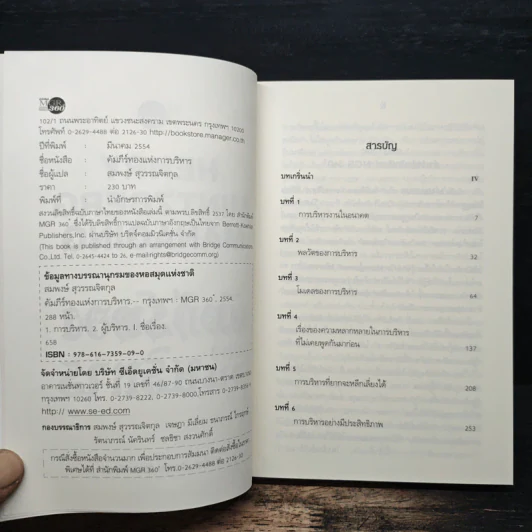 MGR 360°
102/1 ถนนพระอาทิตย์ แขวงชนะสงคราม เขตพระนคร กรุงเทพฯ 10200
โทรศัพท์ 0-2629-4488 ต่อ 2126-30 http://bookstore.manager.co.th
ปีที่พิมพ์ : มีนาคม 2554
ชื่อหนังสือ : คัมภีร์ทองแห่งการบริหาร
ชื่อผู้แปล : สมพงษ์ สุวรรณจิตกุล
ราคา : 230 บาท
พิมพ์ที่ : นำอักษรการพิมพ์
สงวนลิขสิทธิ์ฉบับภาษาไทยของหนังสือเล่มนี้ ตามพรบ.ลิขสิทธิ์ 2537 โดย สำนักพิมพ์
MGR 360° ซึ่งได้รับลิขสิทธิ์การแปลฉบับภาษาอังกฤษเป็นไทยจาก Berrett-Koehler
Publishers,Inc. ผ่านบริษัท บริดจ์คอมมิวนิเคชั่น จำกัด
(This book is published through an arrangement with Bridge Communications
Co.,Ltd. Tel. 0-2645-4424 to 26, e-mail:rights@bridgecomm.org)
ข้อมูลทางบรรณานุกรมของหอสมุดแห่งชาติ
สมพงษ์ สุวรรณจิตกุล
คัมภีร์ทองแห่งการบริหาร.-- กรุงเทพฯ : MGR 360°, 2554.
288 หน้า.
1. การบริหาร. 2. ผู้บริหาร. I. ชื่อเรื่อง.
658
ISBN : 978-616-7359-09-0
จัดจำหน่ายโดย บริษัท ซีเอ็ดยูเคชั่น จำกัด (มหาชน)
อาคารเนชั่นทาวเวอร์ ชั้นที่ 19 เลขที่ 46/87-90 ถนนบางนา-ตราด เขตบางนา
กรุงเทพฯ 10260 โทร. 0-2739-8222, 0-2739-8000 โทรสาร
http:// www.se-ed.com
กองบรรณาธิการ สมพงษ์ สุวรรณจิตกุล เจษฎา มีเลี่ยม ธนาภรณ์
รัตนาภรณ์ นัครินทร์ ชลธิชา สงวนศักดิ์
กรณีสั่งซื้อหนังสือจำนวนมาก เพื่อประกอบการสัมมนา ติดต่อสั่งซื้อ
พิเศษได้ที่ สำนักพิมพ์ MGR 360° โทร.0-2629-4488 ต่อ 2126-30
สารบัญ
บทเกริ่นนำ IV
บทที่ 1
การบริหารงานในอนาคต 7
บทที่ 2
พลวัตของการบริหาร 32
บทที่ 3
โมเดลของการบริหาร 64
บทที่ 4
เรื่องของความหลากหลายในการบริหาร
ที่ไม่เคยพูดกันมาก่อน 137
บทที่ 5
การบริหารที่ยากจะหลีกเลี่ยงได้ 208
บทที่ 6
การบริหารอย่างมีประสิทธิภาพ 253